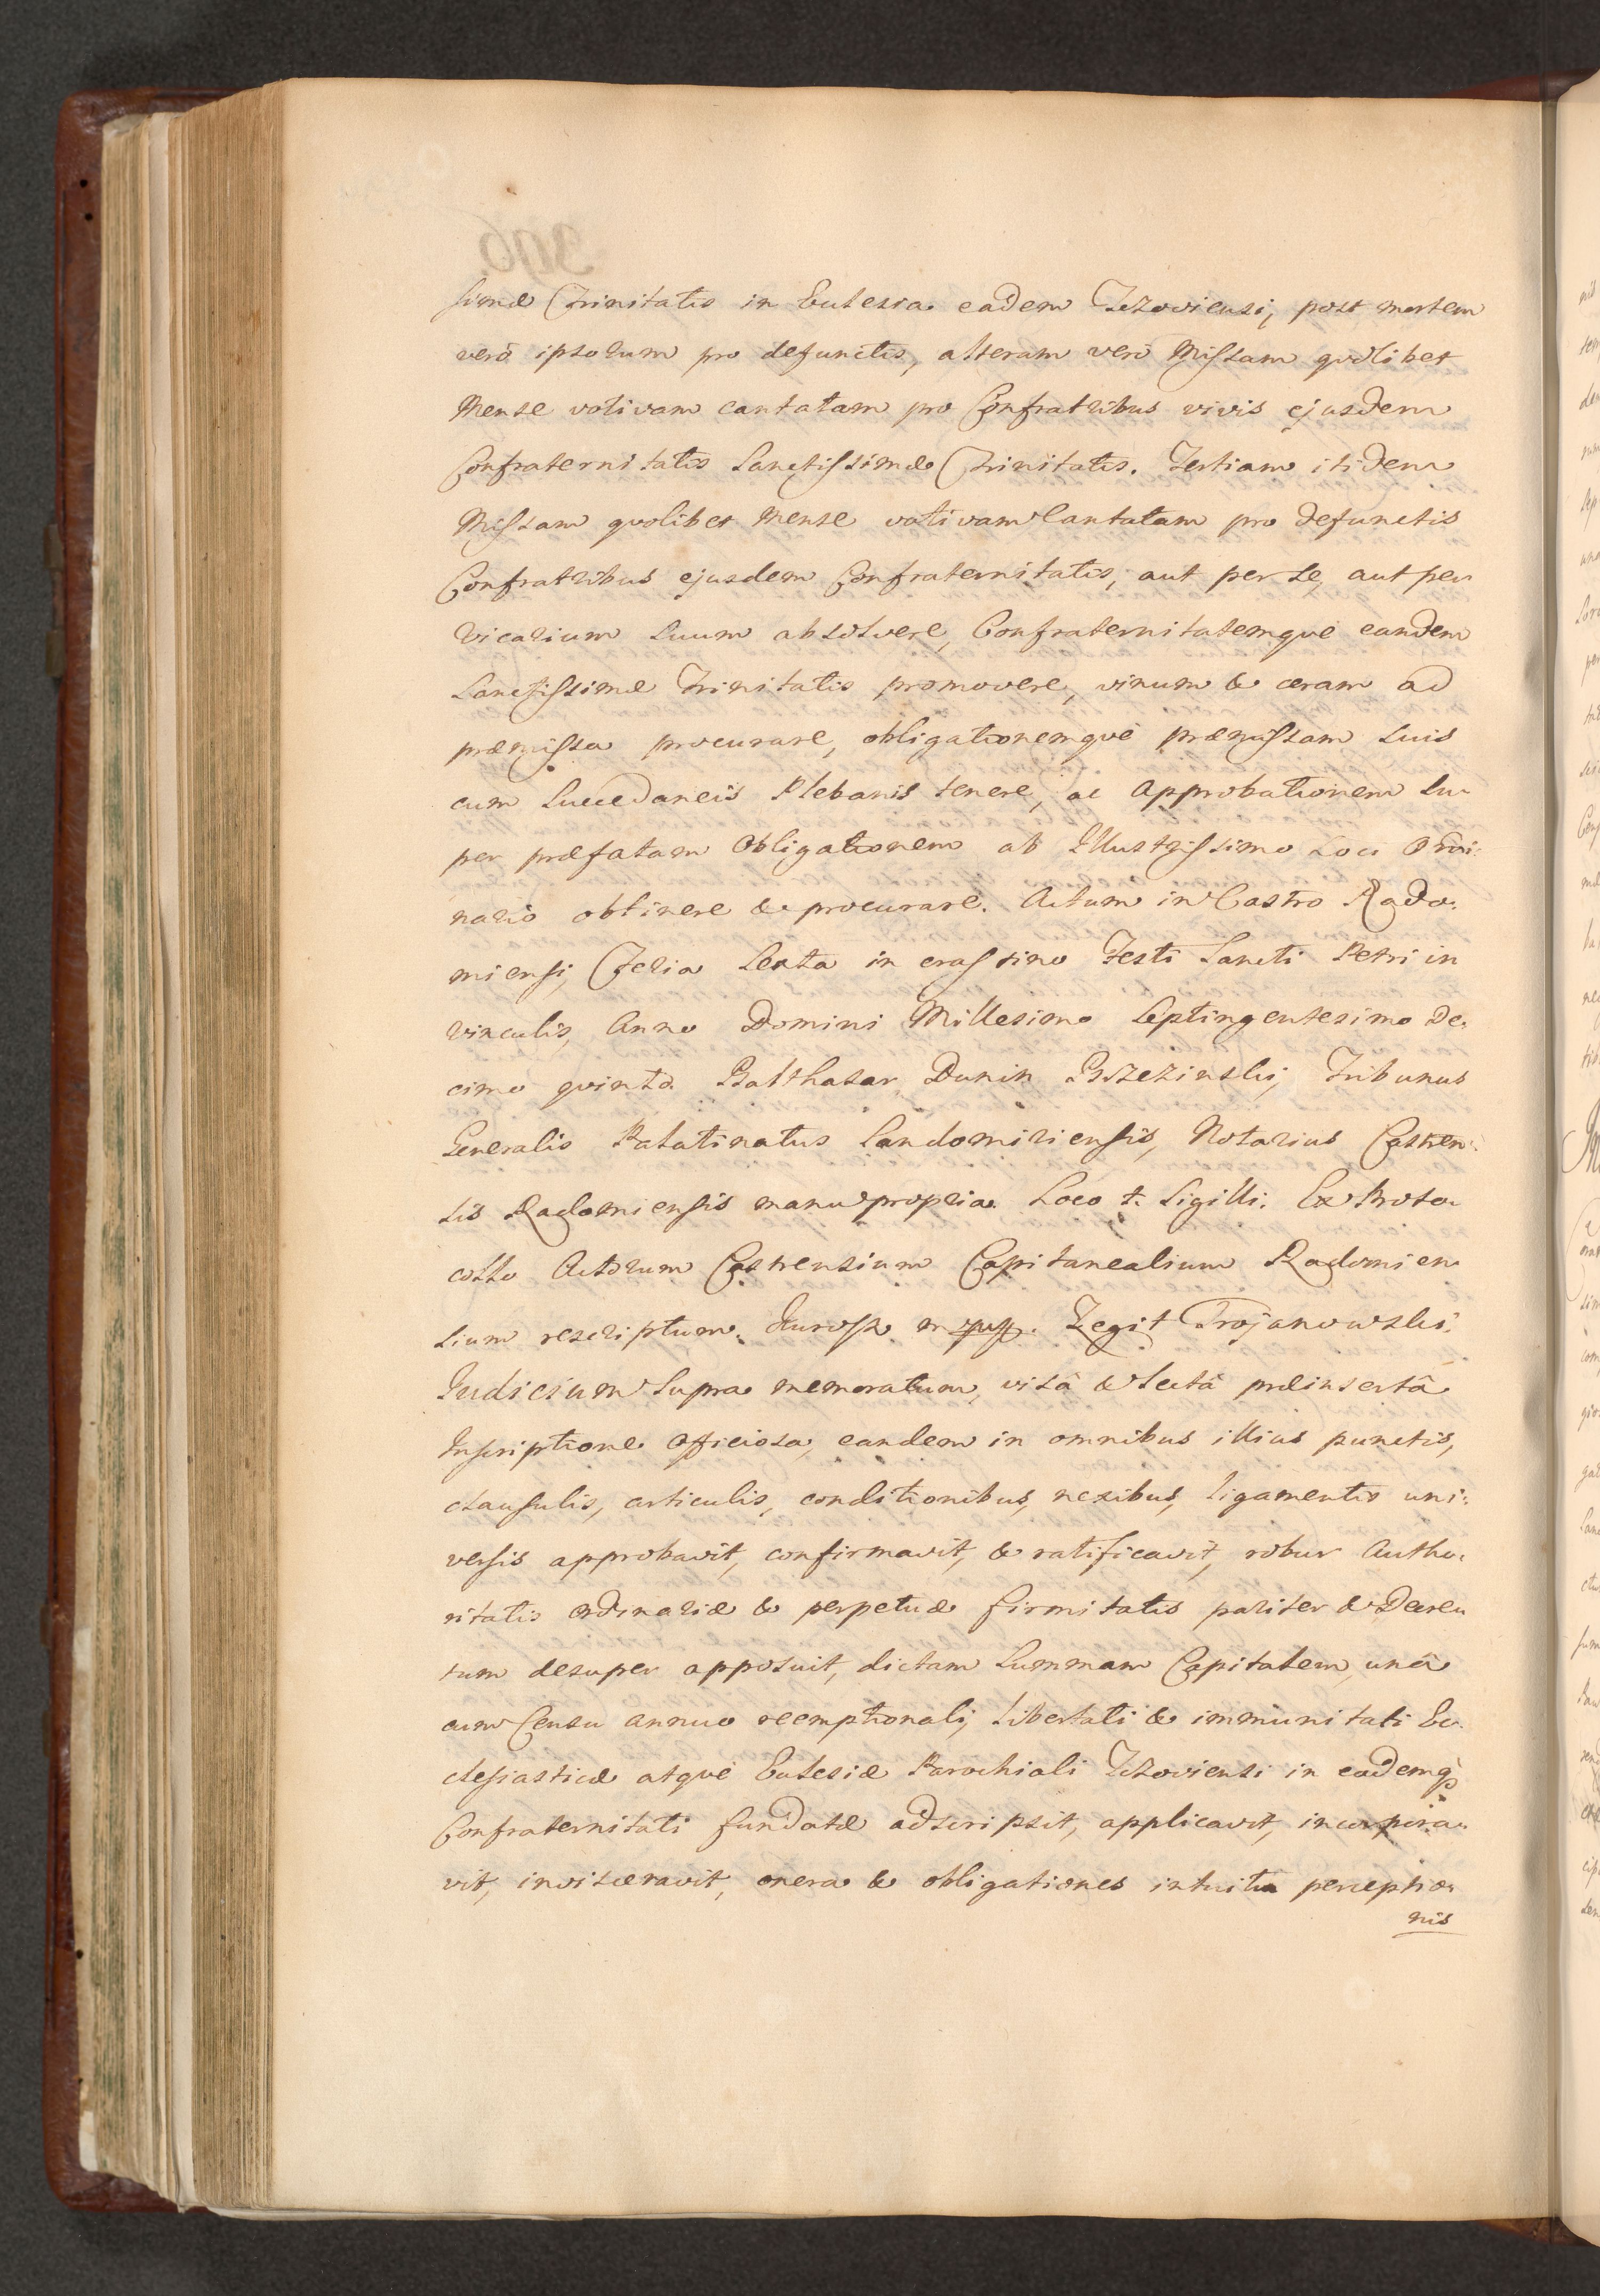 simæ Trinitatis in Ecclesia eadem Jezoviensi, post mortem
verò ipsorum pro defunctis, alteram verò Missam qvolibet
Mense votivam cantatam pro Confratribus vivis ejusdem
Confraternitatis Sanctissimæ Trinitatis. Tertiam itidem
Missam qvolibet Mense votivam Cantatam pro defunctis
Confratribus ejusdem Confraternitatis, aut per se, aut per
Vicarium suum absolvere, Confraternitatemqve eandem
Sanctissimæ Trinitatis promovere, vinum & ceram ad
præmissa procurare, obligationemqvè præmissam suis
cum Succedaneis Plebanis tenere, ac Approbationem su-
per præfatam Obligationem ab Illustrissimo Loci Ordi-
nario obtinere & procurare. Actum in Castro Rado-
miensi, Feria Sexta in crastino Festi Sancti Petri in
vinculis, Anno Domini Millesimo Septingentesimo De-
cimo qvinto. Balthasar Dunin Tribunus
Generalis Palatinatus Sandomiriensis, Notarius Castren-
sis Radomiensis manu propria. Loco †. Sigilli. Ex Proto-
collo Actorum Castrensium Capitanealium Radomien-
sium rescriptum. Legit Trojanowski.
Judicium Supra memoratum, visâ & lectâ præinsertâ
Inscriptione Officiosa, eandem in omnibus illius punctis,
clausulis, articulis, conditionibus, nexibus, ligamentis uni-
versis approbavit, confirmavit, & ratificavit, robur Autho-
ritatis ordinariæ & perpetuæ firmitatis pariter & Decre-
tum desuper apposuit, dictam Summam Capitalem, unà
cum Censu annuo reemptionali, Libertati & immunitati Ec-
clesiasticæ atqvè Ecclesiæ Parochiali Jezoviensi in eademq3
Confraternitati fundatæ adscripsit, applicavit, incorpora-
vit, invisceravit, onera & obligationes intuitu perceptio-
nis